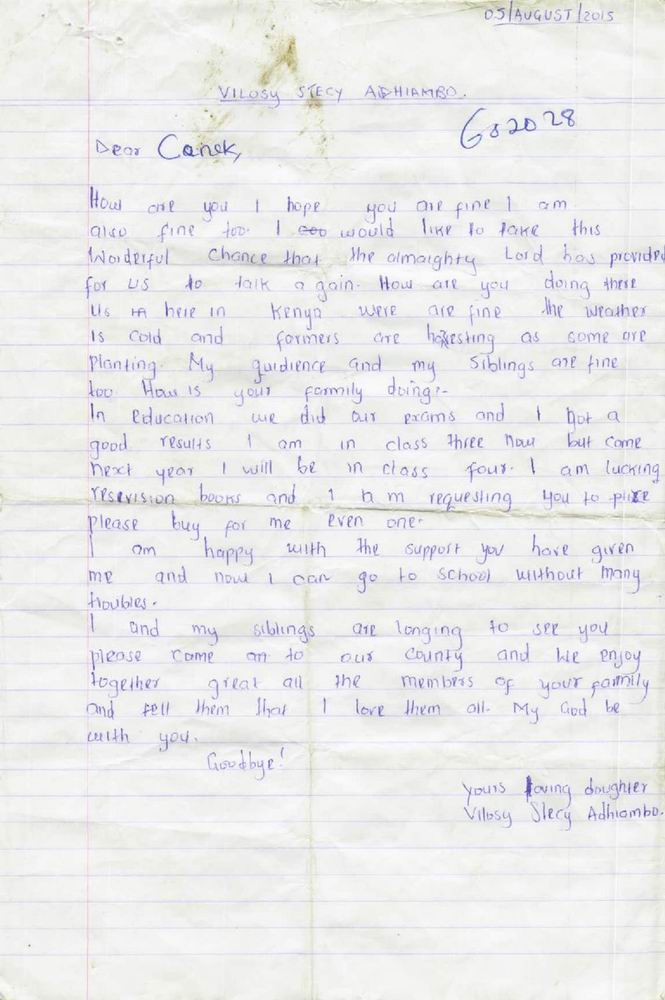 05/AUGUST/2015
VILOSY STECY ADHIAMBO.
Dear Canek,
How are you I hope you are fine I am
also fine too. I would like to take this
Wonderful chance that the almaighty Lord has provided
for us to talk a gain. How are you doing there
Us here in Kenya were are fine the weather
is cold and farmers are havesting as some are
planting. My guidience and my siblings are fine
too. How is your farmily doing?-
In Education we did our exams and I got a
good results I am in class three now but come
next year I will be in class four. I am lucking
resevision books and I am requesting you to
please buy for me even one.
I am happy with the support you have given
me and now I can go to school without many
troubles.
I and my siblings are longing to see you
please come on to our county and we enjoy
together great all the members of your farmily
and tell them that I love them all. My God be
with you.
Goodbye!
yours loving doughter
Vilosy Stecy Adhiambo.